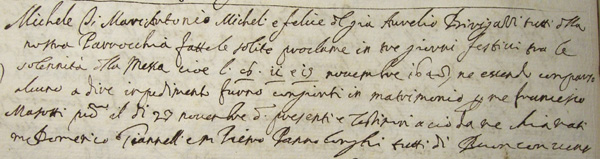 Michele di Marc Antonio Micheli e felice del già Aurelio tutti della
nostra Parrocchia fatte le solite proclame in tre giorni festivi tra le
solennità della Messa cioè li novembre ne essendo comparso
alcuno a dire impedimenti furno congiunti in matrimonio me francesco
Masotti il di 27 novembre presenti e Testimoni a ciò da me chiamati
Domenico Giannelli e Pietro tutti di